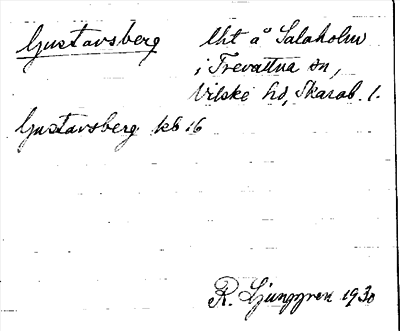 Gustavsberg
Uht å Salaholm
i Trevattna sn,
Vilske hd, Skarab. l.
Gustavsberg kb 16
R. Ljunggren 1930